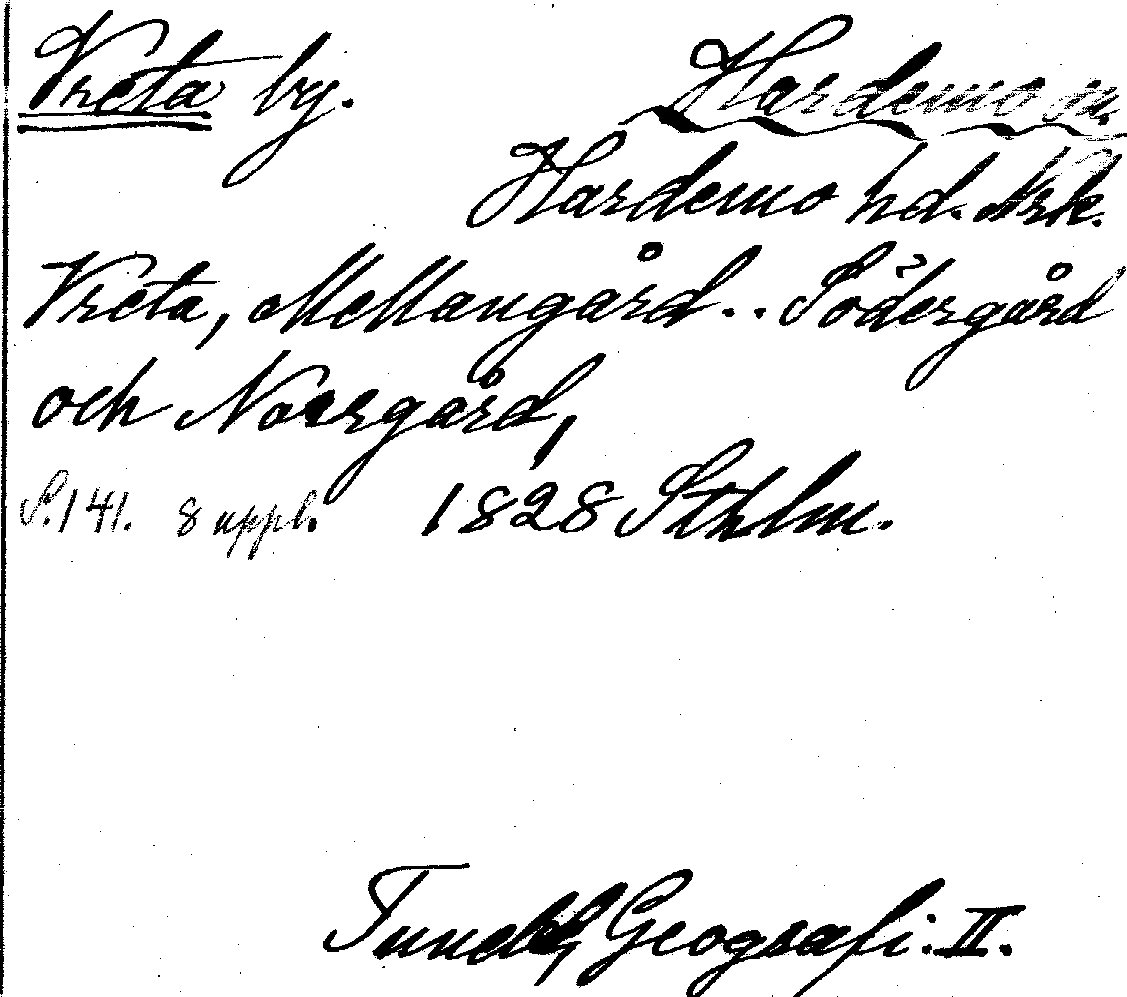 Vreta by. Hardemo sn.
Hardemo hd. Nrk.
Vreta, Mellangård.. Södergård
och Norrgård,
S.141. 8 uppl. 1828 Sthlm.
Tuneld, Geografi. II.